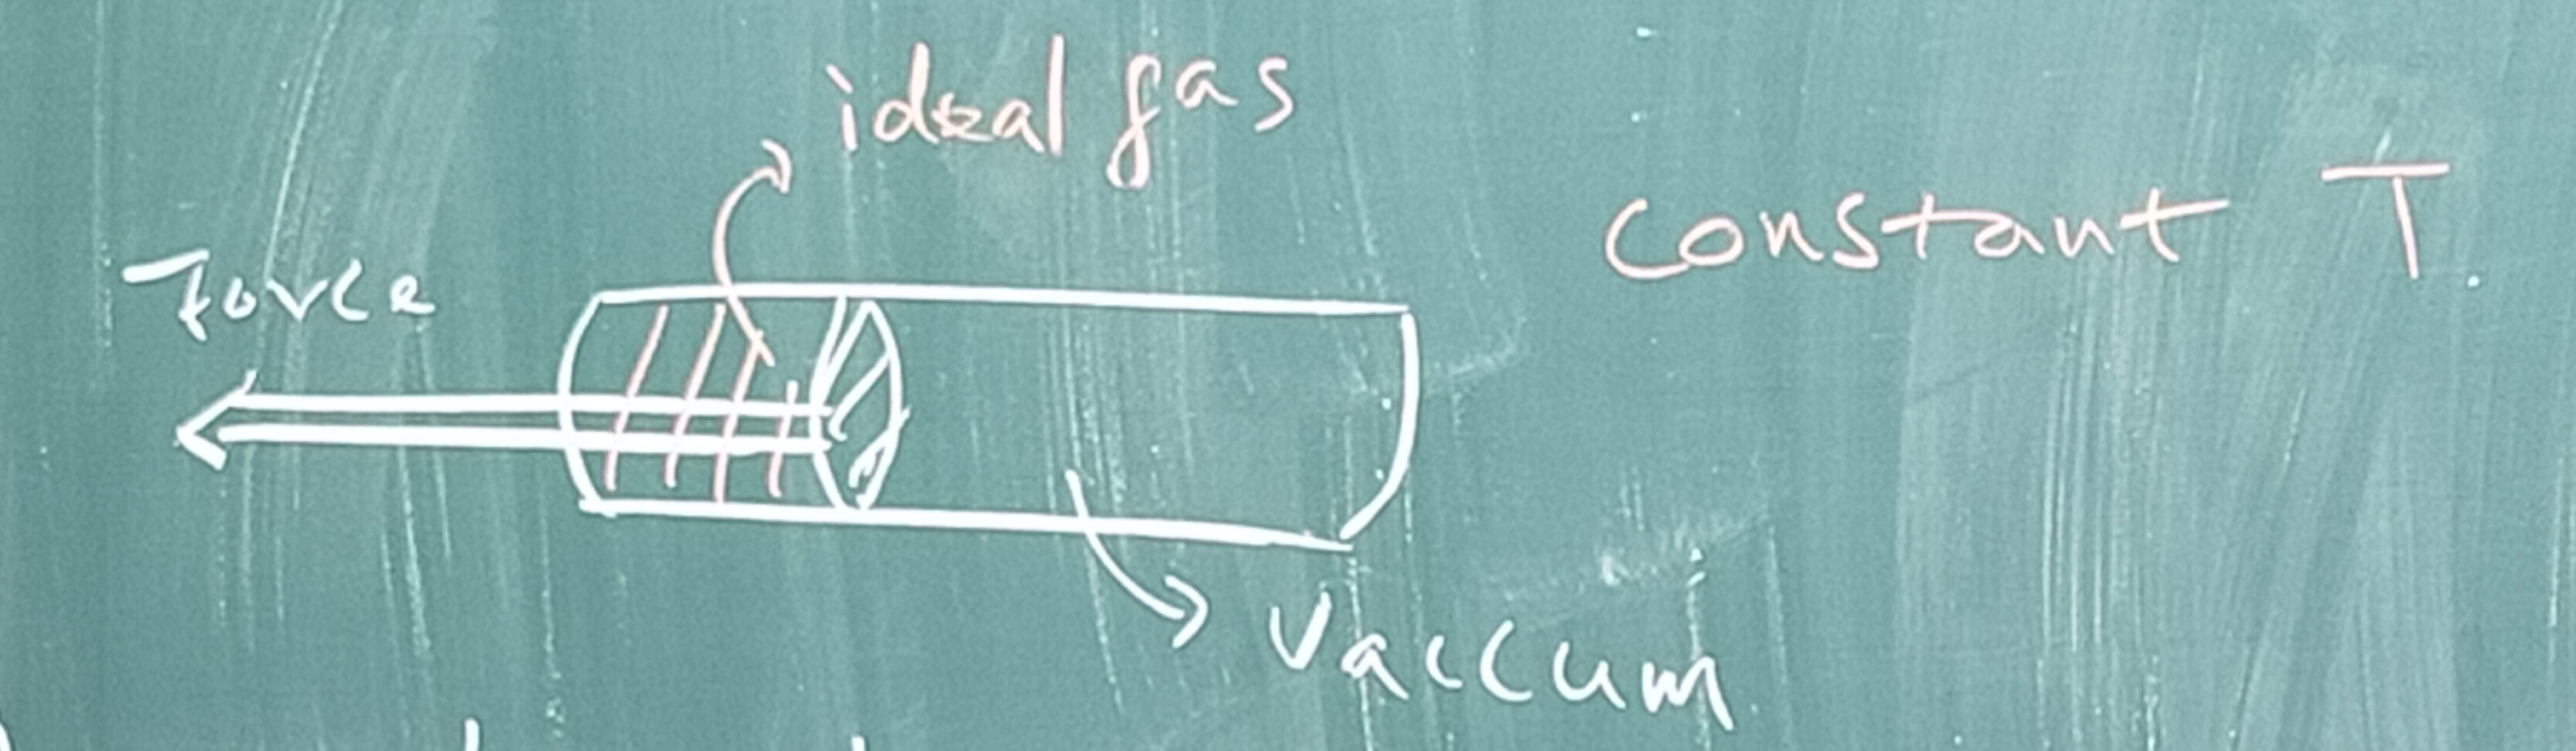 ideal gas
constant T.
Force
Vaccum